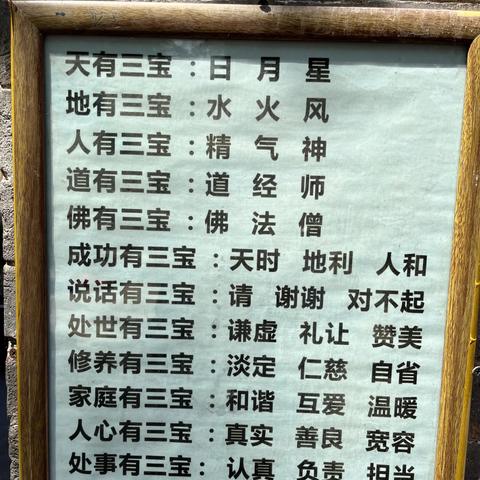 天有三宝：日 月 星
地有三宝：水 火 风
人有三宝：精 气 神
道有三宝：道 经 师
佛有三宝：佛 法 僧
成功有三宝：天时 地利 人和
说话有三宝：请 谢谢 对不起
处世有三宝：谦虚 礼让 赞美
修养有三宝：淡定 仁慈 自省
家庭有三宝：和谐 互爱 温暖
人心有三宝：真实 善良 宽容
处事有三宝：认真 负责 担当